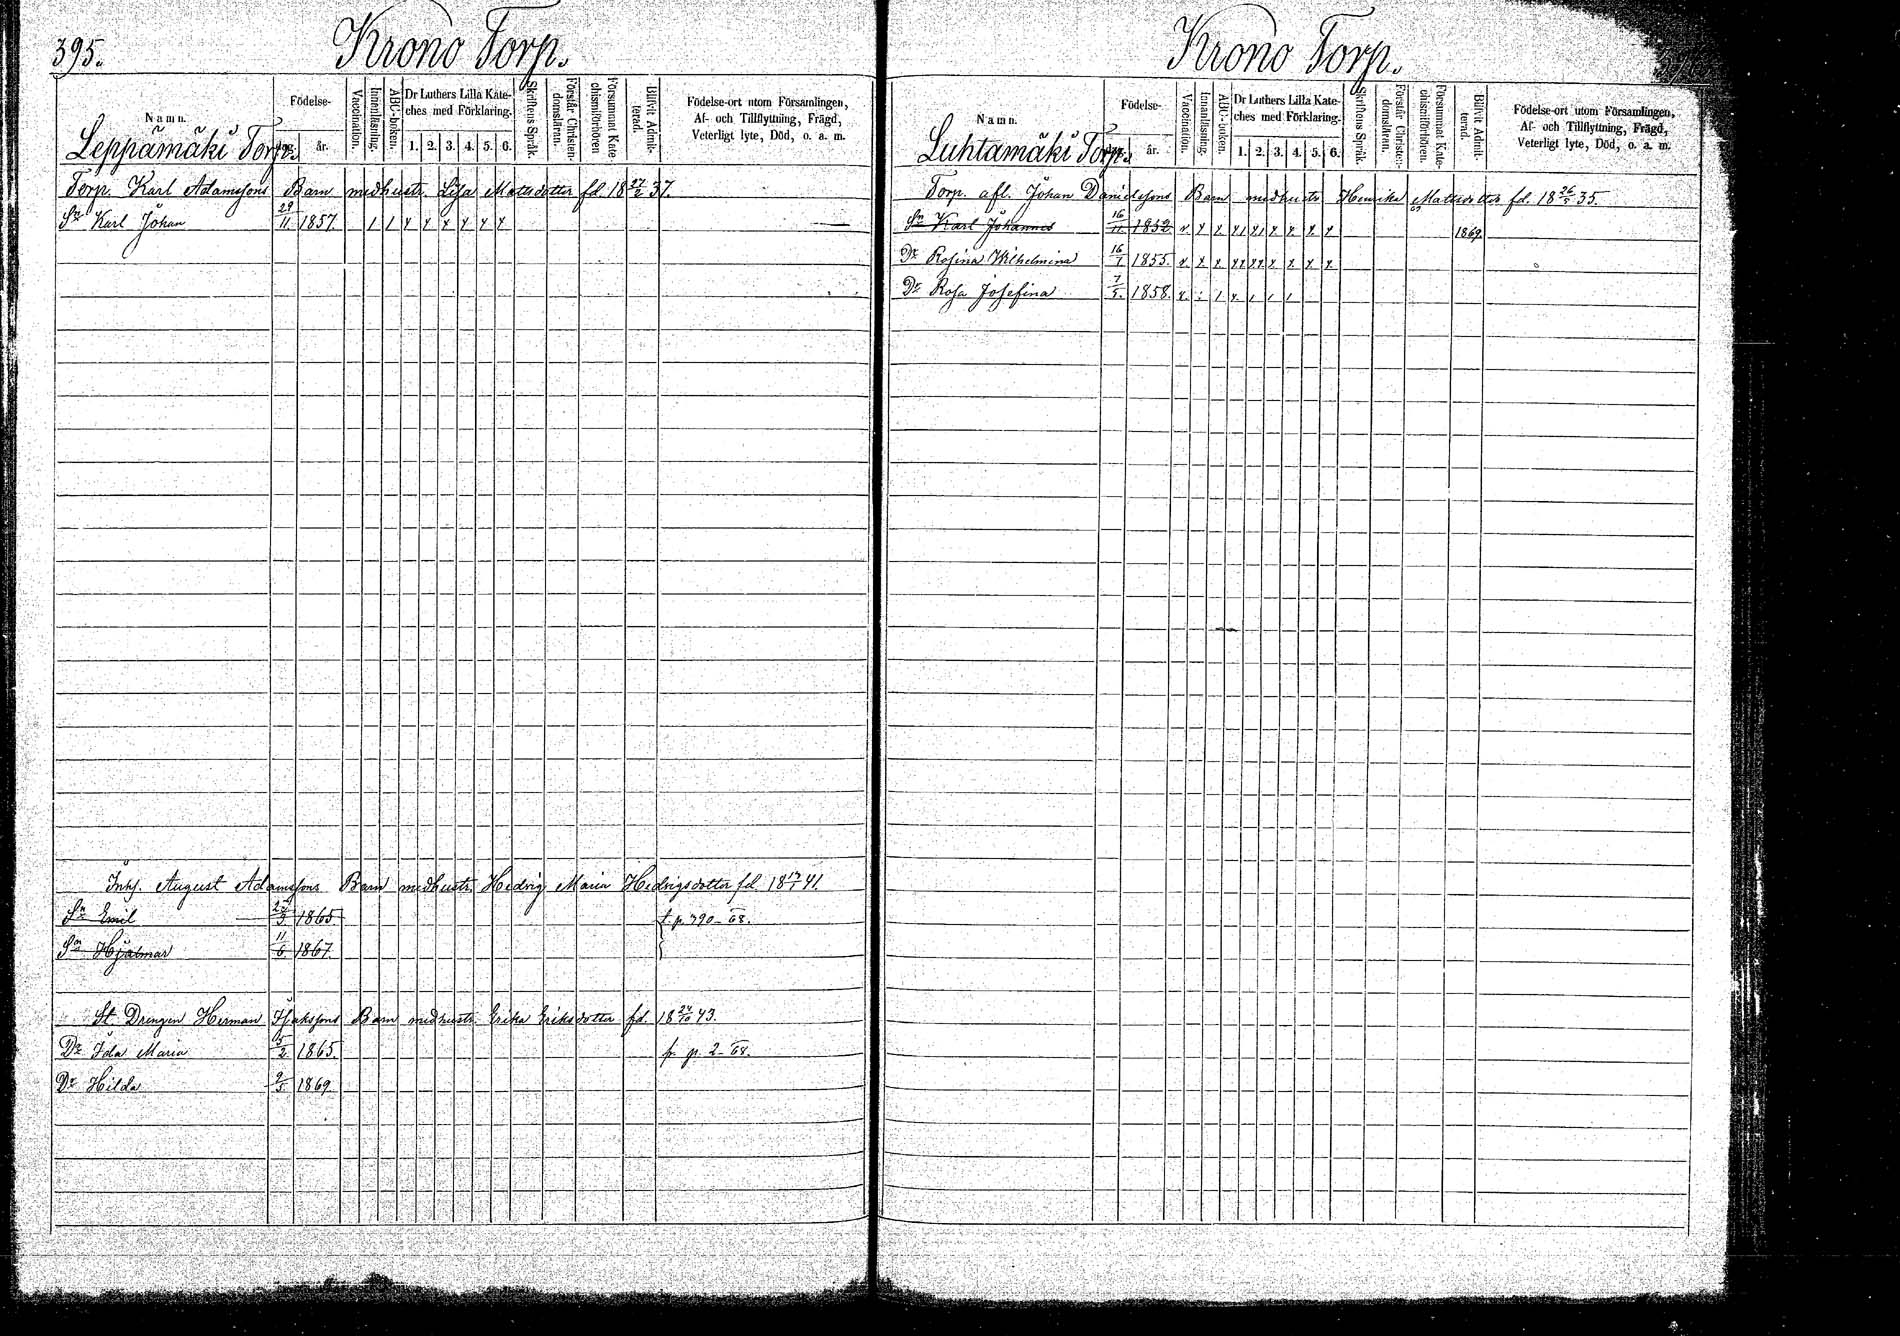 395.
Krono Torp.
Namn.
Födelse-
dag.
år.
Vaccination.
Innanläsning.
ABC-boken.
Dr Luthers Lilla Kate-
ches med Förklaring.
1. 2. 3. 4. 5. 6.
Skriftens Språk.
Förstår Christen-
domsläran.
Försummat Kate
chismiförhören
Blifvit Admit-
terad.
Födelse-ort utom Församlingen,
Af- och Tillflyttning, Frägd,
Veterligt lyte, Död, o. a. m.
Leppämäki Torp.
Torp. Karl Adamssons Barn medhustr. Lisa Mattsdotter fd. 18 2/37.
Sn Karl Johan 29/11 1857.
Inhs. August Adamssons Barn medhustr. Hedvig Maria Hedvigsdotter fd. 18 41.
Sn Emil 1865 t. p. 390 - 68.
Sn Hjalmar 11/6 1867.
St. Drengen Herman Isakssons Barn medhustr. Erika Eriksdotter fd. 18 24/10 43.
Dr Ida Maria 5/2 1865. fr. p. 2 - 68.
Dr Hilda 9/5 1869
Krono Torp.
Namn.
Födelse-
dag.
år.
Vaccination.
Innanläsning.
ABC-boken.
Dr Luthers Lilla Kate-
ches med Förklaring.
1. 2. 3. 4. 5. 6.
Skriftens Språk.
Förstår Christen-
domsläran.
Försummat Kate-
chismiförhören.
Blifvit Admit-
terad.
Födelse-ort utom Församlingen,
Af- och Tillflyttning, Frägd,
Veterligt lyte, Död, o. a. m.
Luhtamäki Torp.
Torp. afl. Johan Danielssons Barn medhustr Henrika Mattsdotter fd. 18 26/5 35.
Sn Karl Johannes 16/11 1852 1869.
Dr Rosina Wilhelmina 16/1 1855.
Dr Rosa Josefina 7/5. 1858.